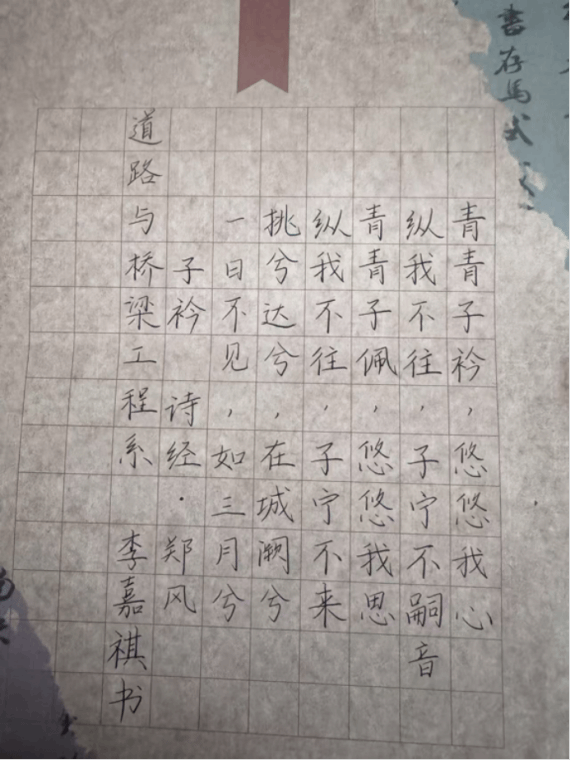 青青子衿，悠悠我心
纵我不往，子宁不嗣音
青青子佩，悠悠我思
纵我不往，子宁不来
挑兮达兮，在城阙兮
一日不见，如三月兮
子衿 诗经·郑风
道路与桥梁工程系 李嘉祺书